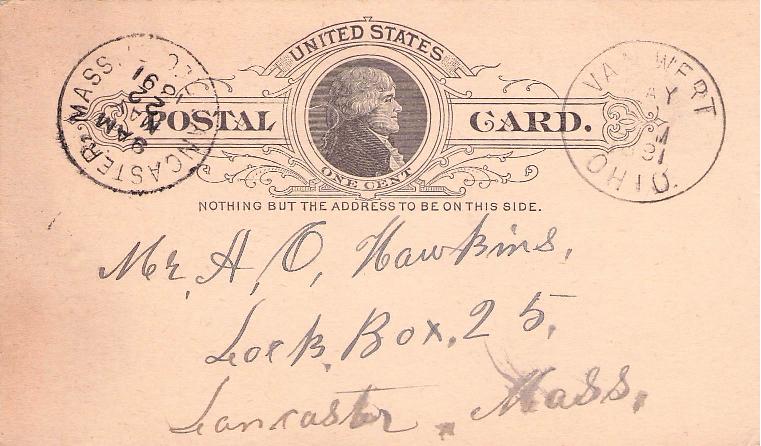 UNITED STATES
POSTAL CARD.
ONE CENT
NOTHING BUT THE ADDRESS TO BE ON THIS SIDE.
LANCASTER MASS.
9 AM
91
VAN WERT
OHIO.
Mr. A, O, Hawkins,
Lock Box. 25,
Lancaster. Mass.